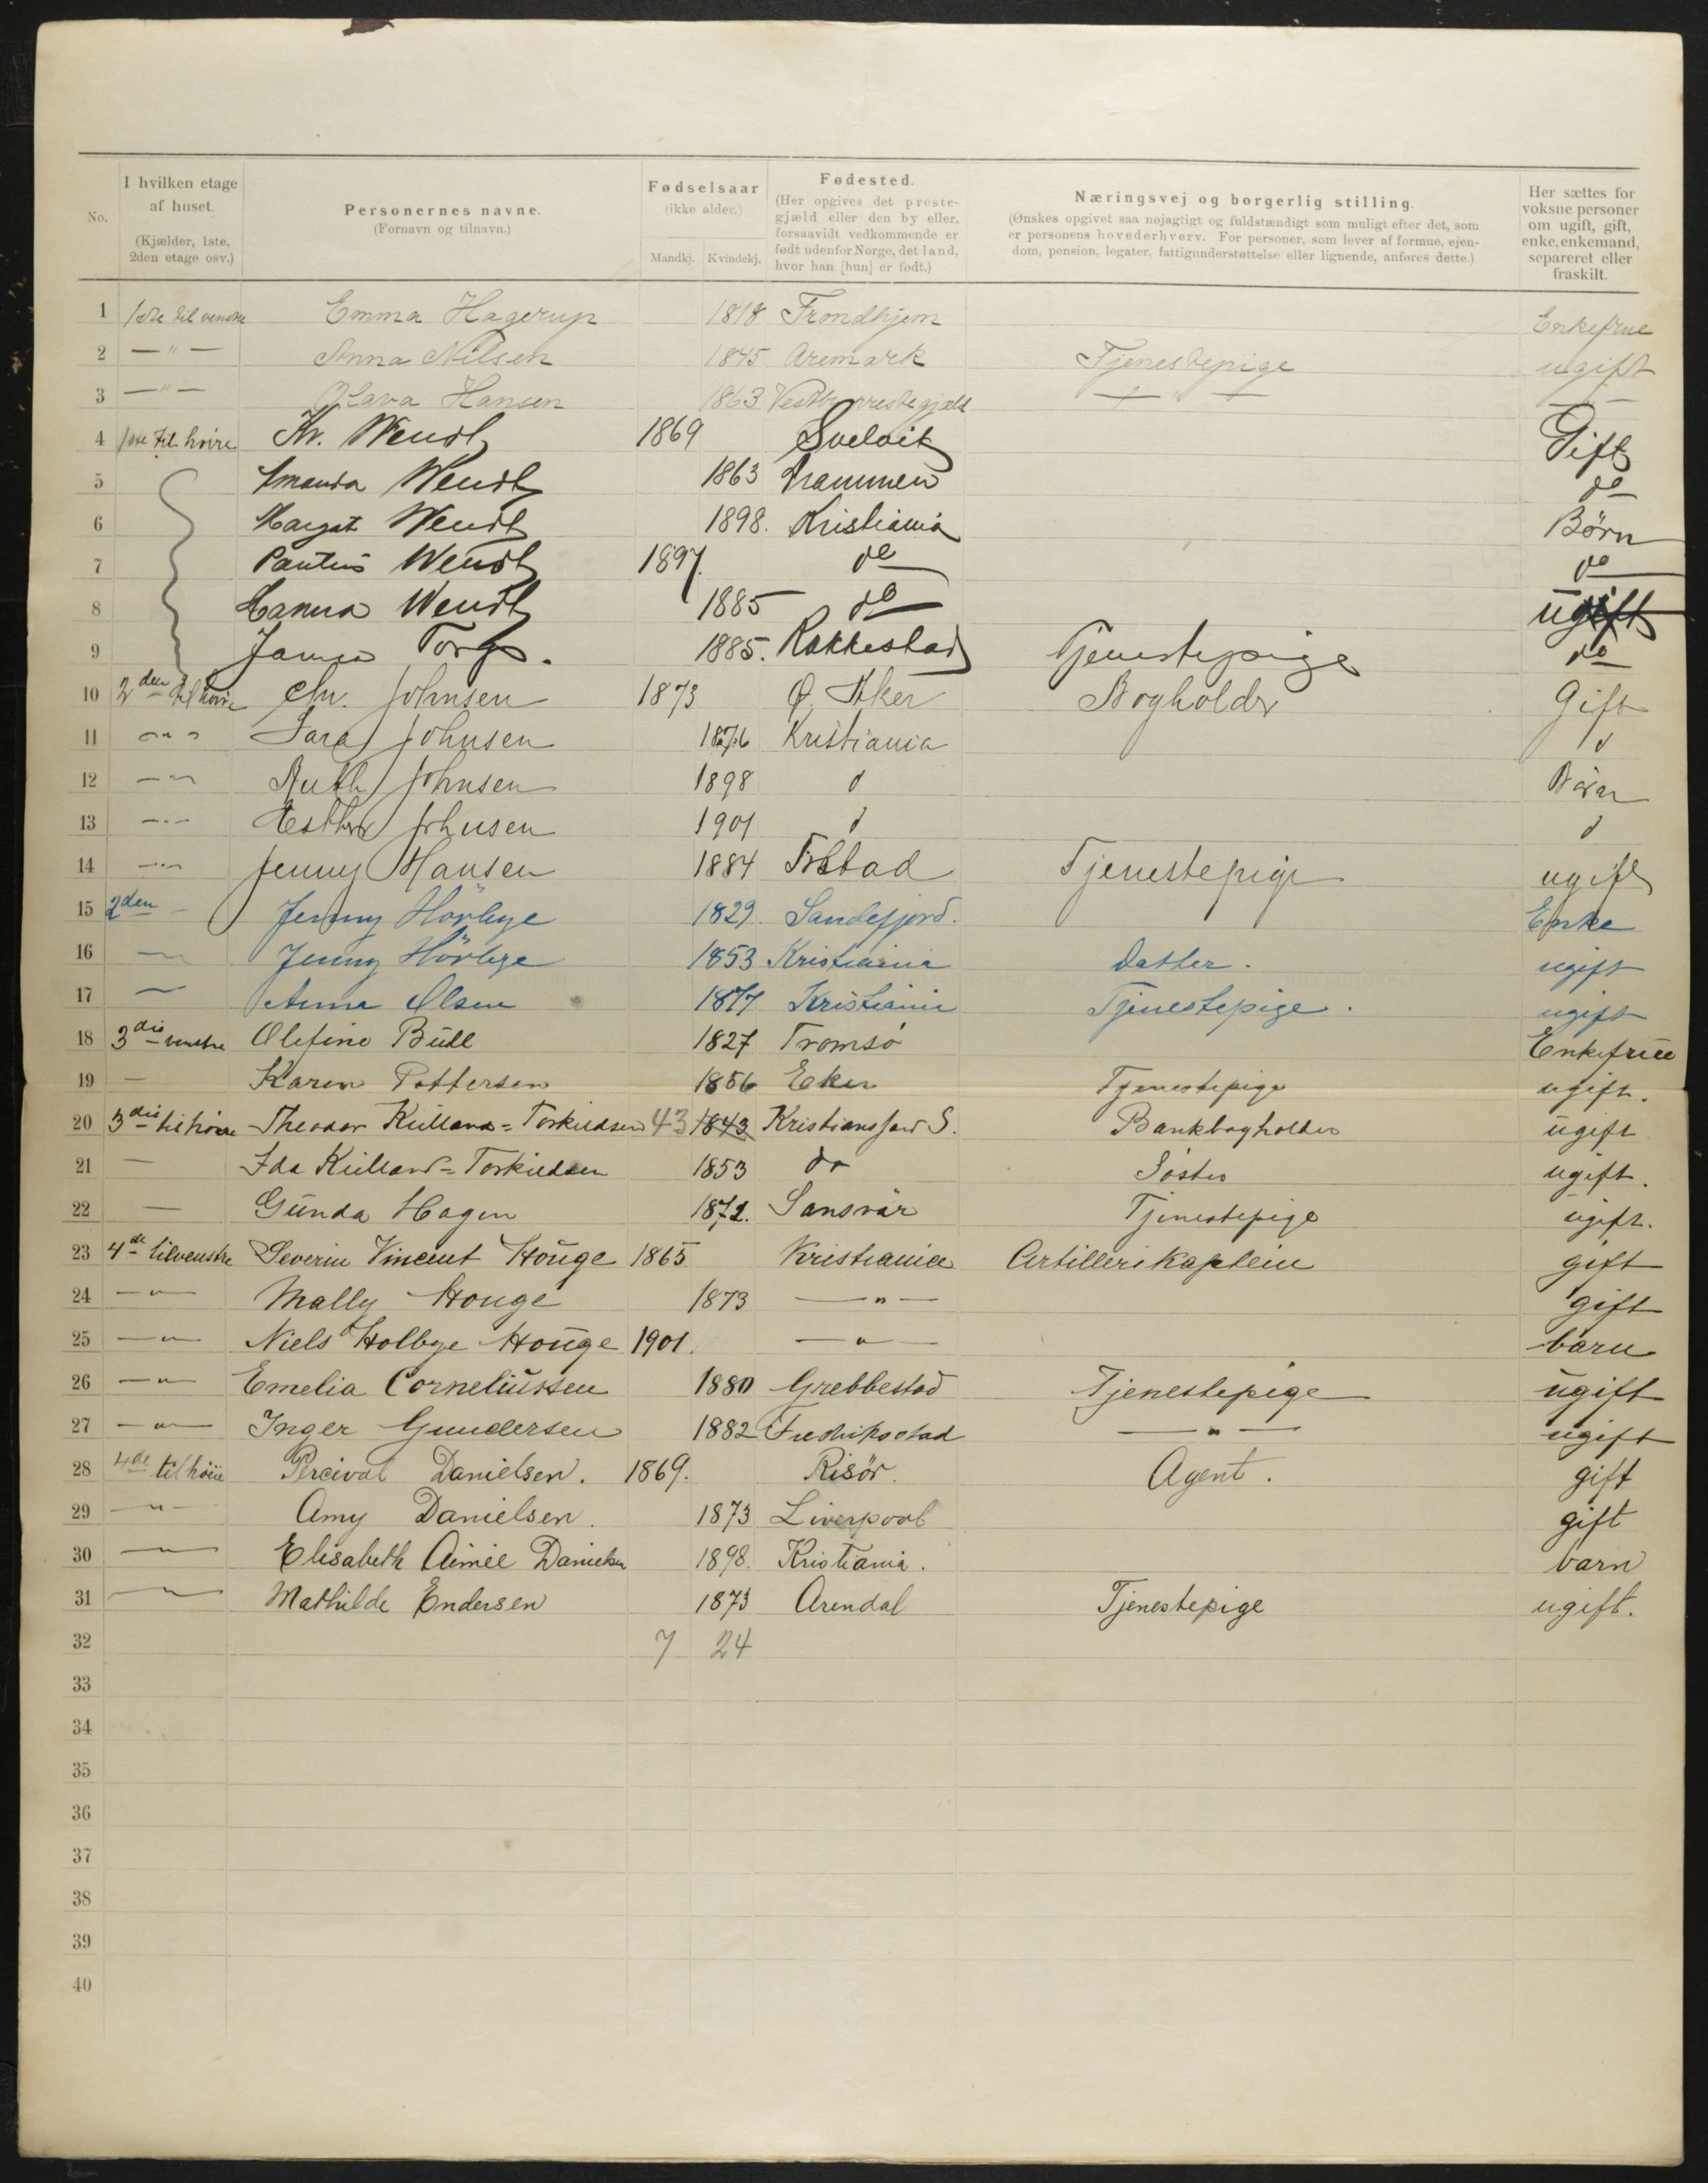 No. | I hvilken etage af huset. (Kjælder, 1ste, 2den etage osv.) | Personernes navne. (Fornavn og tilnavn.) | Fødselsaar (ikke alder.) Mandkj. Kvindekj. | Fødested. (Her opgives det prestegjæld eller den by eller, forsaavidt vedkommende er født udenfor Norge, det land, hvor han [hun] er født.) | Næringsvej og borgerlig stilling. (Ønskes opgivet saa nøjagtigt og fuldstændigt som muligt efter det, som er personens hovederhverv. For personer, som lever af formue, ejendom, pension, legater, fattigunderstøttelse eller lignende, anføres dette.) | Her sættes for voksne personer om ugift, gift, enke, enkemand, separeret eller fraskilt.
1 1ste til venstre Emma Hagerup 1818 Trondhjem Enkefrue
2 — " — Anna Nilsen 1845 Aremark Tjenestepige ugift
3 — " — Olava Hansen 1863 — " — —
4 1ste til høire Kr. Wendt 1869 Svelvik Gift
5 Amanda Wendt 1863 Drammen do
6 Margit Wendt 1898. Kristiania Børn
7 Wendt 1897. do do
8 Hanna Wendt 1885 do ugift
9 1885. Rakkestad Tjenestepige do
10 2den til høire Chr. Johnsen 1873 Ø. Aker Bogholder Gift
11 — " — Sara Johnsen 1876 Kristiania d
12 — " — Ruth Johnsen 1898 d Børn
13 — " — Esther Johnsen 1901 d d
14 — " — Jenny Hansen 1884 Tjenestepige ugift
15 2den — Jenny Hörbye 1829. Sandefjord. Enke
16 — Jenny Hörbye 1853 Kristiania Datter. ugift
17 — Anna Olsen 1877 Kristiania Tjenestepige. ugift
18 3die venstre Olefine Bull 1827 Tromsø Enkefrue
19 — Karen Pettersen 1856 Eker Tjenestepige ugift.
20 3die til høire Theodor Kielland=Torkildsen 43 1843 Kristianssand S. Bankbogholder ugift
21 — Ida Kielland=Torkildsen 1853 do Søster ugift.
22 — Gunda Hagen 1872. Sansvär Tjenestepige ugift.
23 4de til venstre Severin Vincent Houge 1865 Kristiania Artillerikaptein gift
24 — " — Mally Houge 1873 — " — gift
25 — " — Niels Holbye Houge 1901. — " — barn
26 — " — Emelia Corneliussen 1880 Grebbestad Tjenestepige ugift
27 — " — Inger Gundersen 1882 Fredrikstad — " — ugift
28 4de til høire Percival Danielsen. 1869. Risör. Agent. gift
29 — " — Amy Danielsen. 1873 Liverpool gift
30 — " — Elisabeth Aimée Danielsen 1898. Kristiania. barn
31 — " — Mathilde Endersen 1873 Arendal Tjenestepige ugift.
32 7 24
33
34
35
36
37
38
39
40